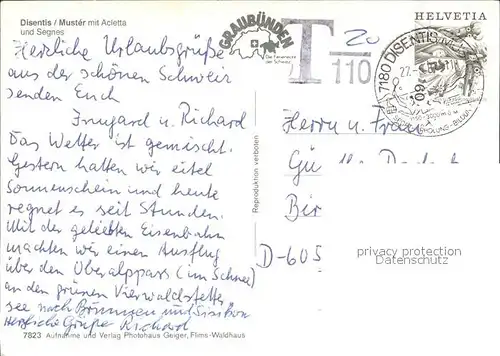 Disentis / Mustér mit Acletta
und Segnes
Herzliche Urlaubsgrüße
aus der schönen Schweiz
senden Euch
Irmgard u. Richard
Das Wetter ist gemischt.
Gestern hatten wir eitel
Sonnenschein und heute
regnet es seit Stunden.
Mit der geliebten Eisenbahn
machten wir einen Ausflug
über den Oberalppass (im Schnee)
an den grünen Vierwaldstätter
see nach Brunnen und Sisikon
Herzliche Grüße Richard
7823 Aufnahme und Verlag Photohaus Geiger, Flims-Waldhaus
Reproduktion verboten
GRAUBÜNDEN
Die Ferienecke
der Schweiz
T
20
110
HELVETIA
7180 DISENTIS
Herrn u. Frau
Gü
Bir
D-605
privacy protection
Datenschutz